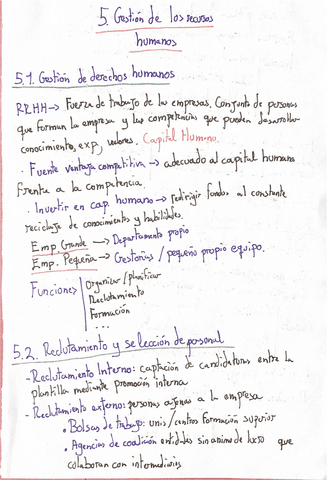 5. Gestión de los recursos
humanos
5.1. Gestión de derechos humanos
RRHH → Fuerza de trabajo de las empresas. Conjunto de personas
que forman la empresa y las competencias que pueden desarrollar
conocimiento, exp, valores. Capital Humano.
· Fuente ventaja competitiva → adecuado al capital humano
frente a la competencia.
· Invertir en cap. humano → redirigir fondos al constante
reciclaje de conocimientos y habilidades.
Emp Grande → Departamento propio
Emp. Pequeña → Gestorías / pequeño propio equipo.
Organizar / planificar
Funciones Reclutamiento
Formación
...
5.2. Reclutamiento y selección de personal
- Reclutamiento Interno: captación de candidaturas entre la
plantilla mediante promoción interna
- Reclutamiento externo: personas ajenas a la empresa
• Bolsas de trabajo: unis / centros formación superior
• Agencias de coalición entidades sin animo de lucro que
colaboran con intermediarios